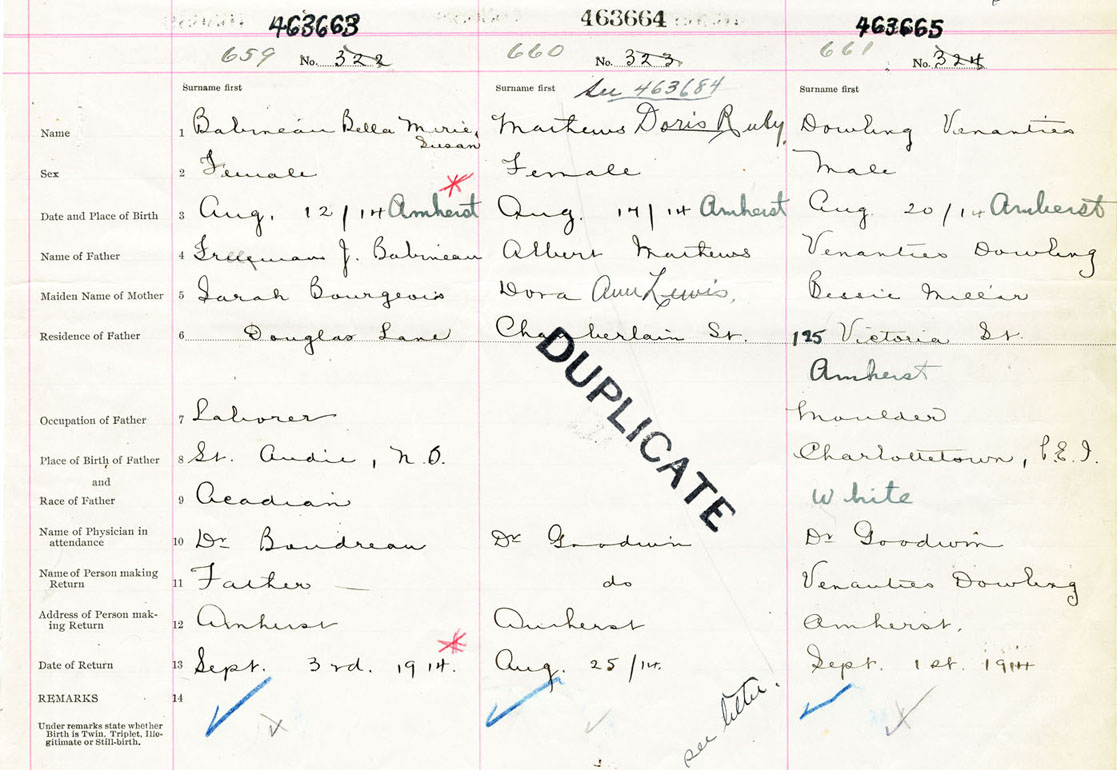 463663 463664 463665
659 No. 322 660 No. 323 661 No. 324
Surname first Surname first see 463684 Surname first
Name 1 Babineau Bella Marie, Mathews Doris Ruby, Dowling Venanties
Susan
Sex 2 Female Female Male
Date and Place of Birth 3 Aug. 12/14 Amherst Aug. 17/14 Amherst Aug. 20/14 Amherst
Name of Father 4 Freeman J. Babineau Albert Mathews Venanties Dowling
Maiden Name of Mother 5 Sarah Bourgeois Dora Ann Lewis, Bessie Millar
Residence of Father 6 Douglas Lane Chamberlain St. 125 Victoria St.
Amherst
DUPLICATE
Occupation of Father 7 Laborer Moulder
Place of Birth of Father 8 St. Andie, N.B. Charlottetown, P.E.I.
and
Race of Father 9 Acadian White
Name of Physician in
attendance 10 Dr Boudreau Dr Goodwin Dr Goodwin
Name of Person making
Return 11 Father do Venanties Dowling
Address of Person mak-
ing Return 12 Amherst Amherst Amherst.
Date of Return 13 Sept. 3rd. 1914. Aug. 25/14. Sept. 1st. 1914
REMARKS 14
see letter.
Under remarks state whether
Birth is Twin, Triplet, Ille-
gitimate or Still-birth.